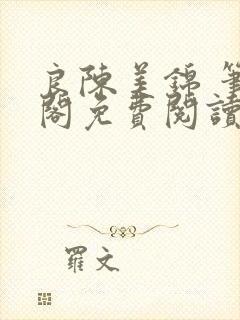 良陳美錦 筆
閣免費閱讀
羅文